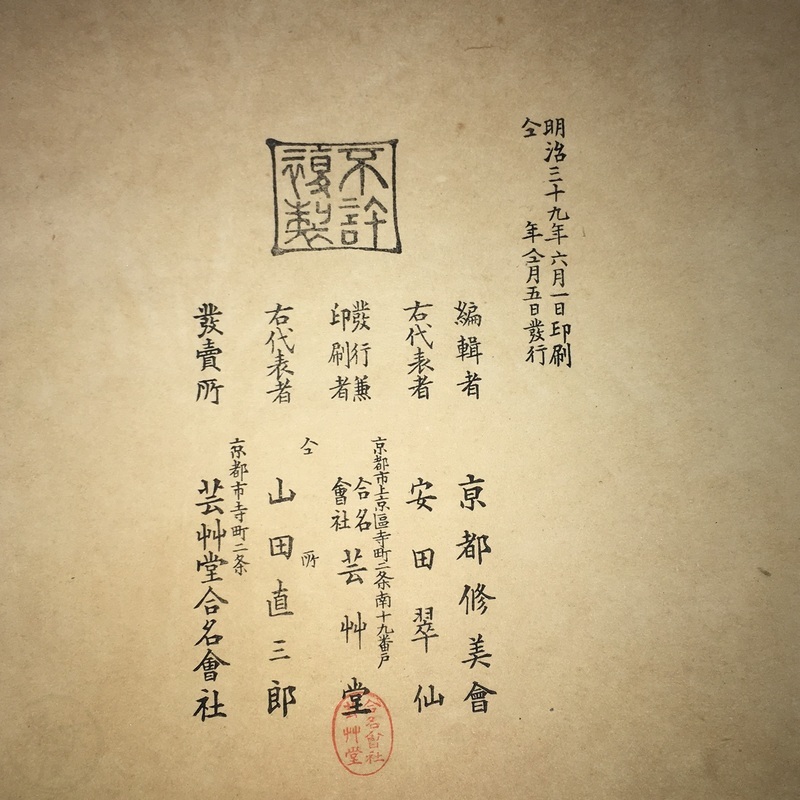 明治三十九年六月一日印刷
仝年仝月五日發行
不許
複製
編輯者 京都修美會
右代表者 安田翠仙
發行兼
印刷者
京都市上京區寺町二条南十九番戸
合名
會社
芸艸堂
合名會社
芸艸堂
右代表者 仝所 山田直三郎
發賣所
京都市寺町二条
芸艸堂合名會社